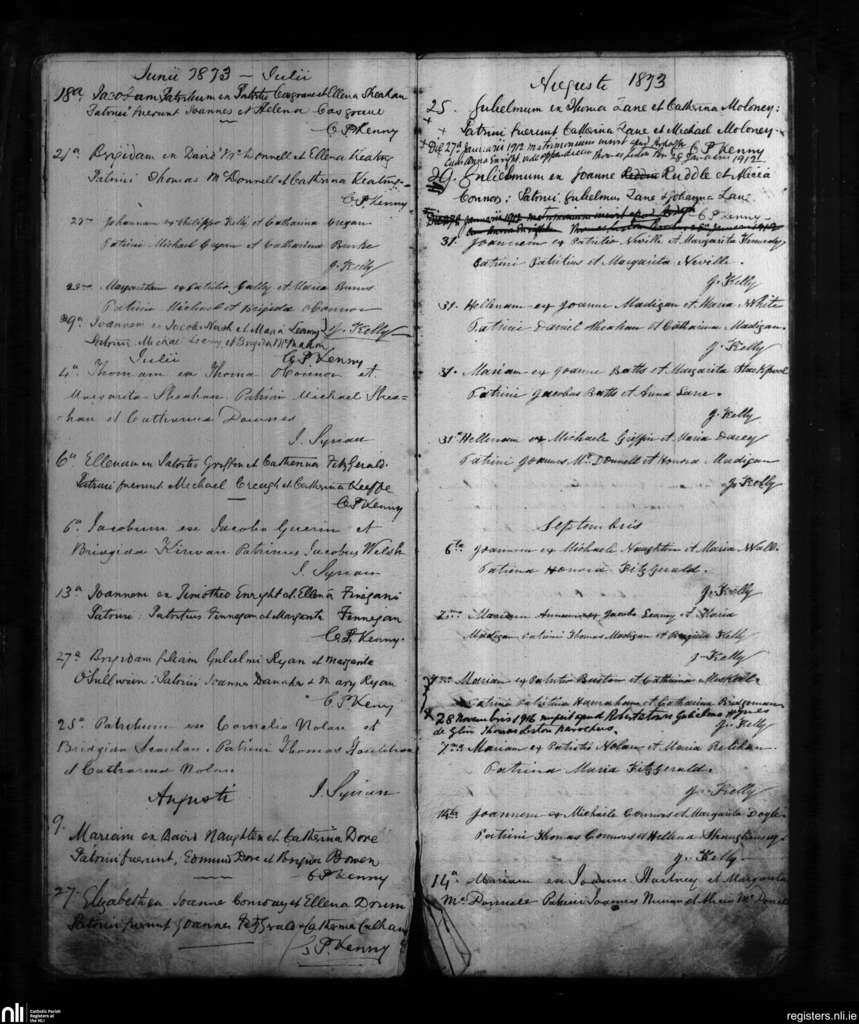 Junii 1873 — Julii
18a. Patritium ex Patritio Cosgrave et Ellena Sheahan
Patrini fuerunt Joannes et Helena Cosgrave
C P Kenny
21a Brigidam ex David Mc Donnell et Ellena Keating
Patrini Thomas McDonnell et Catherina Keating
C. P. Kenny
Johannam ex Philippo Kelly et Catharina Cregan
Patrini Michael Cregan et Catharina Burke
J. Kelly
Margaritam ex Patritio Culty et Maria Burns
Patrini Michael et Brigida O'Connor
J. Kelly
29a. Joannem ex Jacobo Nash et Maria Leamy
Patrini Michael Leamy et Brigida McMahon
C P Kenny
Julii
4a. Thomam ex Thoma O'Connor et
Margarita Sheahan. Patrini Michael Shea-
han et Catharina Downes
J. Synan
6a Ellenam ex Patritio Griffin et Catherina FitzGerald.
Patrini fuerunt Michael Creagh et Catherina Keeffe
C. P Kenny
6a. Jacobum ex Jacobo Guerin et
Bridgida Kirwan Patrinus Jacobus Welsh
J. Synan
13a Joannem ex Timotheo Enryht et Ellena Finigani
Patrini: Patritius Finnegan et Margarita Finnegan
C. P. Kenny.
27a Brigidam filiam Gulielmi Ryan et Margarita
O'Sullivan: Patrini Joanna Danaher & Mary Ryan
C. P Keny
25a Patritium ex Cornelio Nolan et
Bridgida Scanlan. Patrini Thomas
et Catharina Nolan
J. Synan
Augusti
9. Mariam ex David Naughten et Catherina Dore
Patrini fuerunt, Edmund Dore et Brigida Bowen
C P Kenny
27. Elizabeth ex Joanne Conway et Ellena Drum
Patrini fuerunt Joannes FitzGerald & Catherina Culhan
C. P. Kenny
Augusti 1873
25. Gulielmum ex Thoma Lane et Catherina Moloney:
Patrini fuerunt Catherina Lane et Michael Moloney.
Die 27a Januarii 1912 matrimonium inivit apud
C P Kenny
Cum Anna Enright 28 Januarii 1912
29. Gulielmum ex Joanne Ruddle et Alicia
Connors: Patrini Gulielmus Lane & Johanna Lane
C P Kenny
31. Joannem ex Patritio Neville et Margarita Kennedy
Patrini Patritius et Margarita Neville.
J. Kelly
31. Hellenam ex Joanne Madigan et Maria White
Patrini Daniel Sheahan et Catharina Madigan.
J. Kelly
31. Mariam ex Joanne Batts et Margarita Stackpool
Patrini Jacobus Batts et Anna Lane.
J. Kelly
31a Hellenam ex Michaele Griffin et Maria Darcy
Patrini Joannes McDonnell et Honora Madigan
J. Kelly
Septembris
6ta Joannem ex Michaele Naughton et Maria Wall.
Patrina Honoria FitzGerald.
J. Kelly
7ma Mariam Annam ex Jacobo Leamy et Maria
Madigan Patrini Thomas Madigan et Brigida Kelly
J. Kelly
7ma Mariam ex Patritio Burton et Catharina
Patrini Patritius Hanrahan et Catharina Bridgeman
28 Novembris 1916 nupsit apud Robertstown Gulielmo Hynes
J. Kelly
de Glin Thomas Liston parochus.
7ma Mariam ex Patritio Nolan et Maria Relihan.
Patrina Maria FitzGerald.
J. Kelly
14ta Joannem ex Michaele Connors et Margarita Doyle.
Patrini Thomas Connors et Hellena Shaughnessy.
J. Kelly
14a. Mariam ex Joanne Hartney et Margarita
Patrini Joannes et Alicia
nli
Catholic Parish
Registers at
the NLI
registers.nli.ie